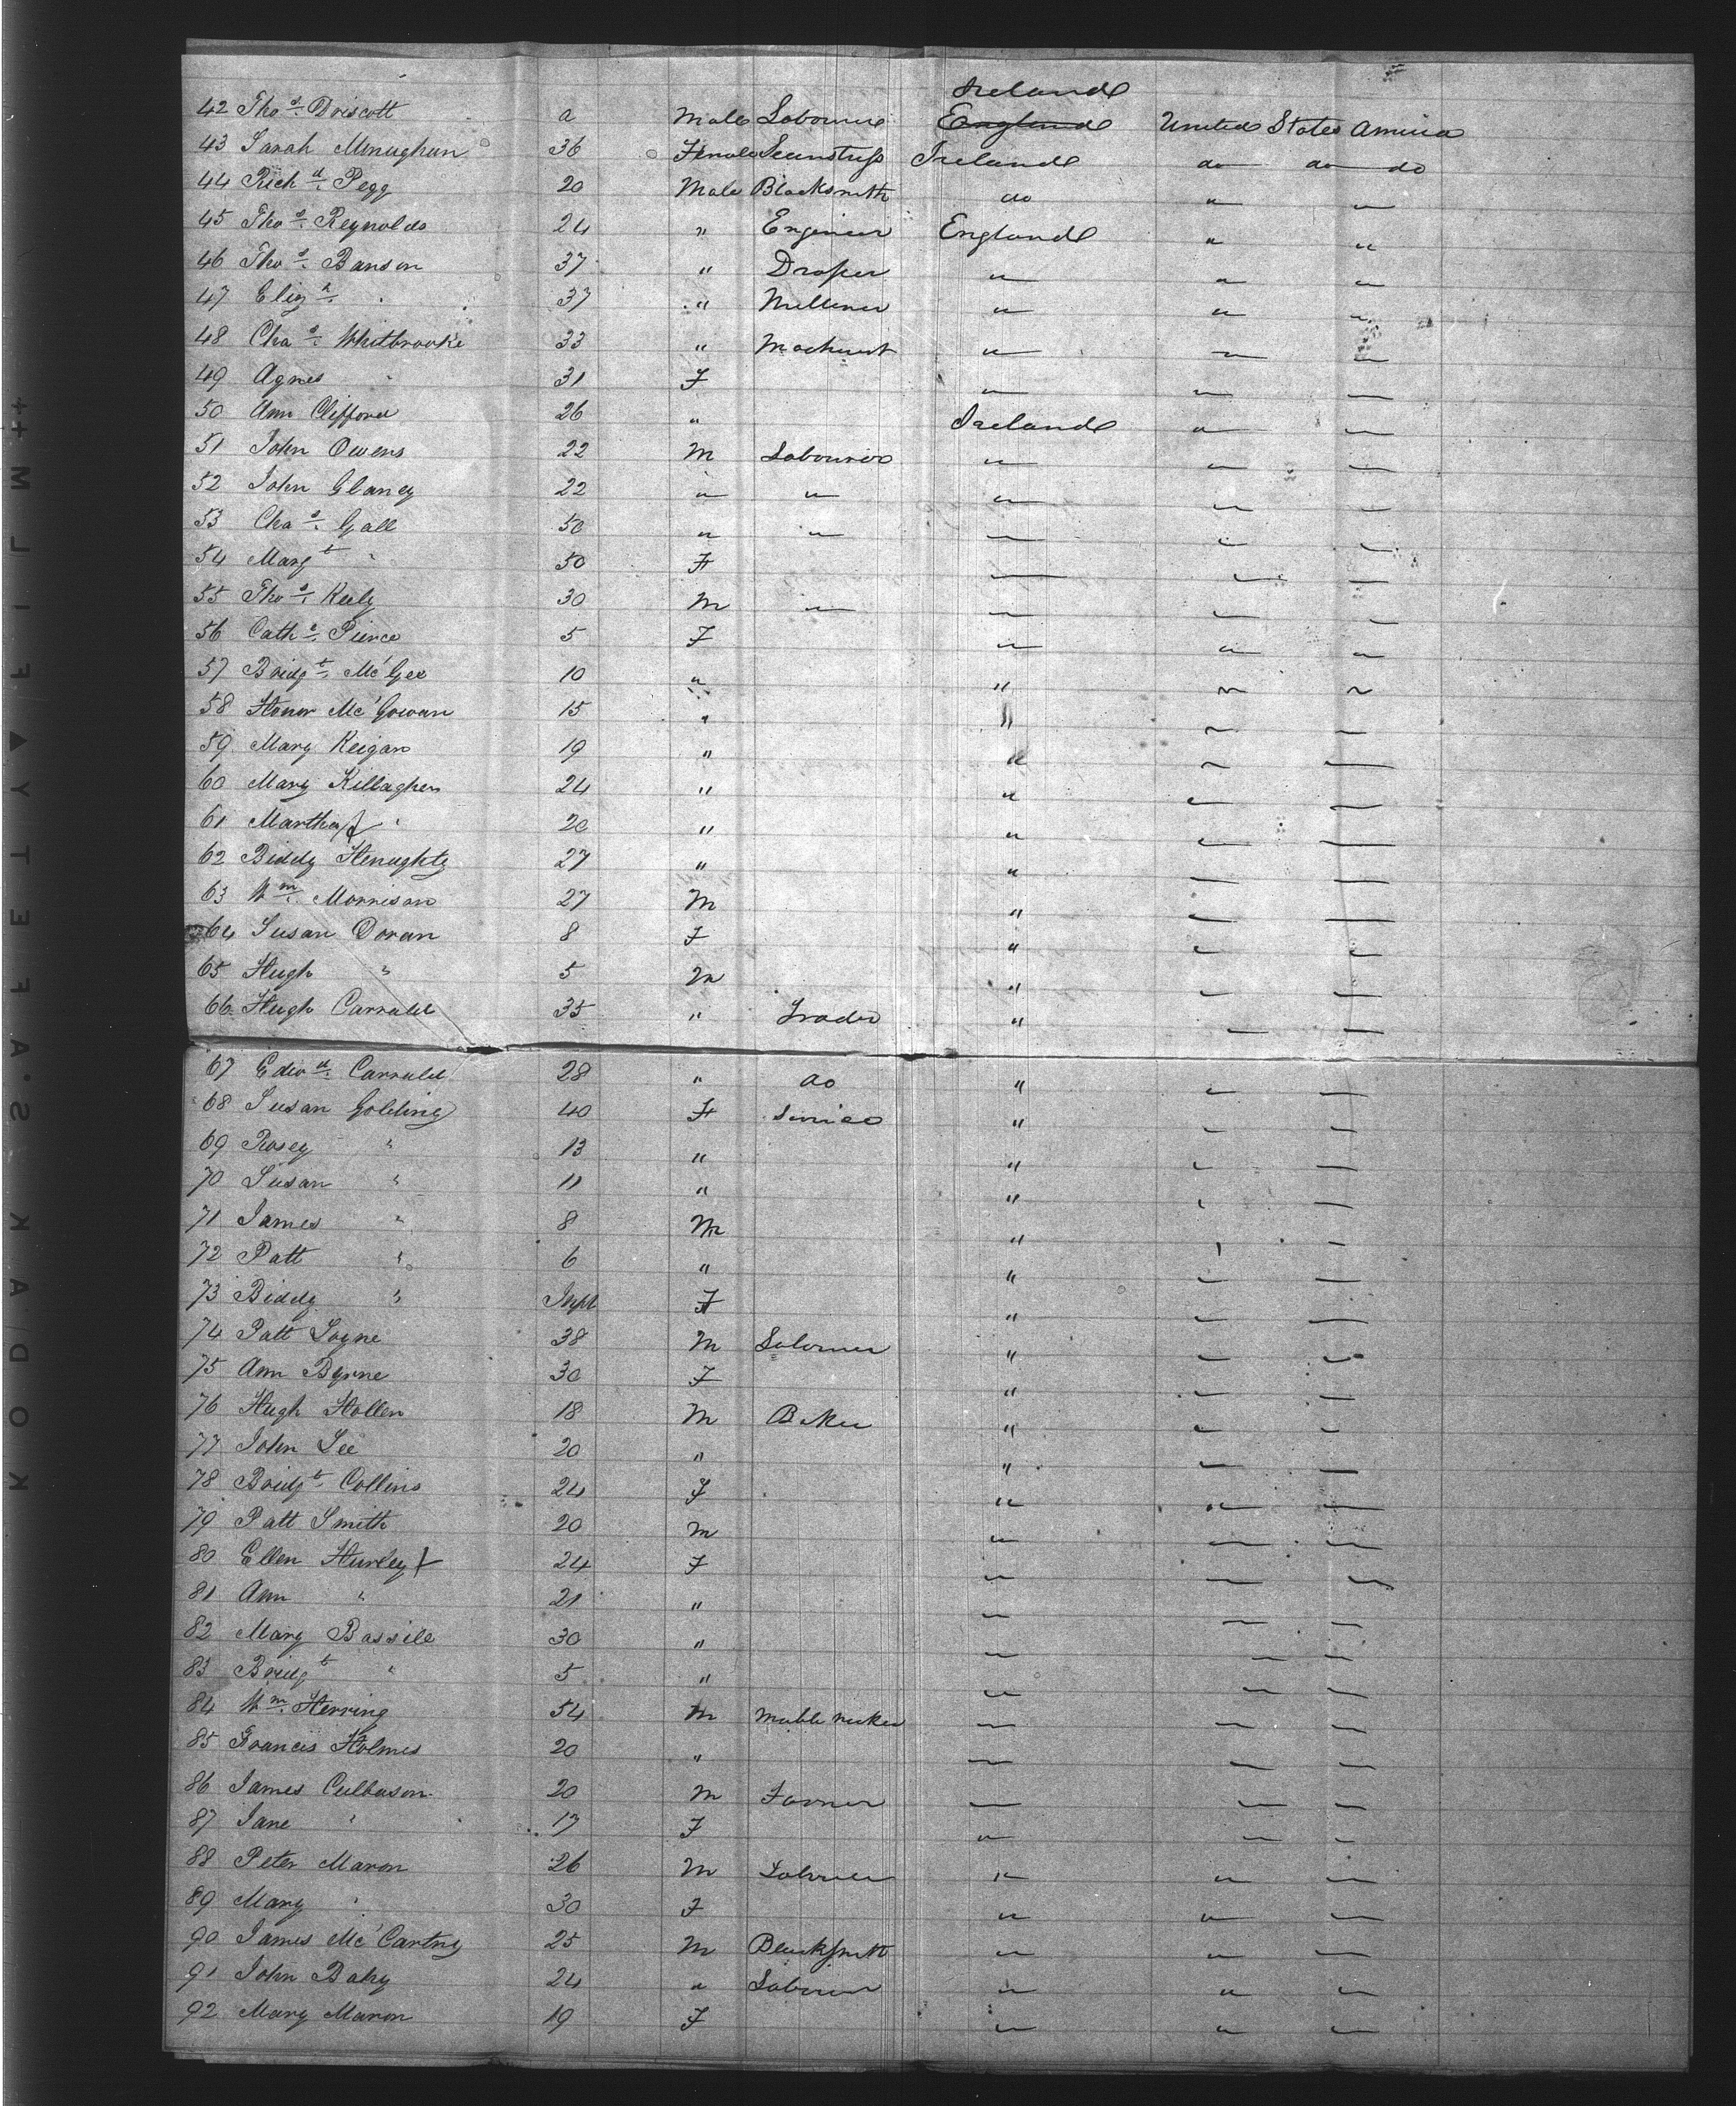 Ireland
42 Thos. Driscott a Male Labourer England United States America
43 Sarah Menughun 36 Female Seamstress Ireland do do do
44 Richd. Pegg 20 Male Blacksmith do " "
45 Thos. Reynolds 24 " Engineer England " "
46 Thos. Banson 37 " Draper " " "
47 Elizh. " 37 " Milliner " " "
48 Chas. Whitbrooke 33 " Machinist " " "
49 Agnes " 31 F " " "
50 Ann Clifford 26 " Ireland " "
51 John Owens 22 M Labourer " " "
52 John Glancy 22 " " " " "
53 Chas. Gall 50 " " " " "
54 Margt " 50 F " " "
55 Thos. Keely 30 M " " " "
56 Cathe. Pierce 5 F " " "
57 Bridgt. McGee 10 " " " "
58 Honor McGowan 15 " " " "
59 Mary Keigan 19 " " " "
60 Mary Killagher 24 " " " "
61 Martha " 20 " " " "
62 Biddy Henughty 27 " " " "
63 Wm. Morrison 27 M " " "
64 Susan Doran 8 F " " "
65 Hugh " 5 M " " "
66 Hugh Carrald 35 " Trader " " "
67 Edwd. Carrald 28 " do " " "
68 Susan Golding 40 F Service " " "
69 Rosey " 13 " " " "
70 Susan " 11 " " " "
71 James " 8 M " " "
72 Patt " 6 " " " "
73 Biddy " Inft F " " "
74 Patt Logne 38 M Labourer " " "
75 Ann Byrne 30 F " " "
76 Hugh Hollen 18 M Baker " " "
77 John Lee 20 " " " "
78 Bridgt Collins 24 F " " "
79 Patt Smith 20 M " " "
80 Ellen Hurley 24 F " " "
81 Ann " 21 " " " "
82 Mary Bassile 30 " " " "
83 Bridgt " 5 " " " "
84 Wm. Herring 54 M " " "
85 Francis Holmes 20 " " " "
86 James Culbason 20 M Farmer " " "
87 Jane " 17 F " " "
88 Peter Maron 26 M Labourer " " "
89 Mary " 30 F " " "
90 James McCartny 25 M Blacksmith " " "
91 John Baky 24 " Labourer " " "
92 Mary Maron 19 F " " "
KODAK·SAFETY▲FILM ++